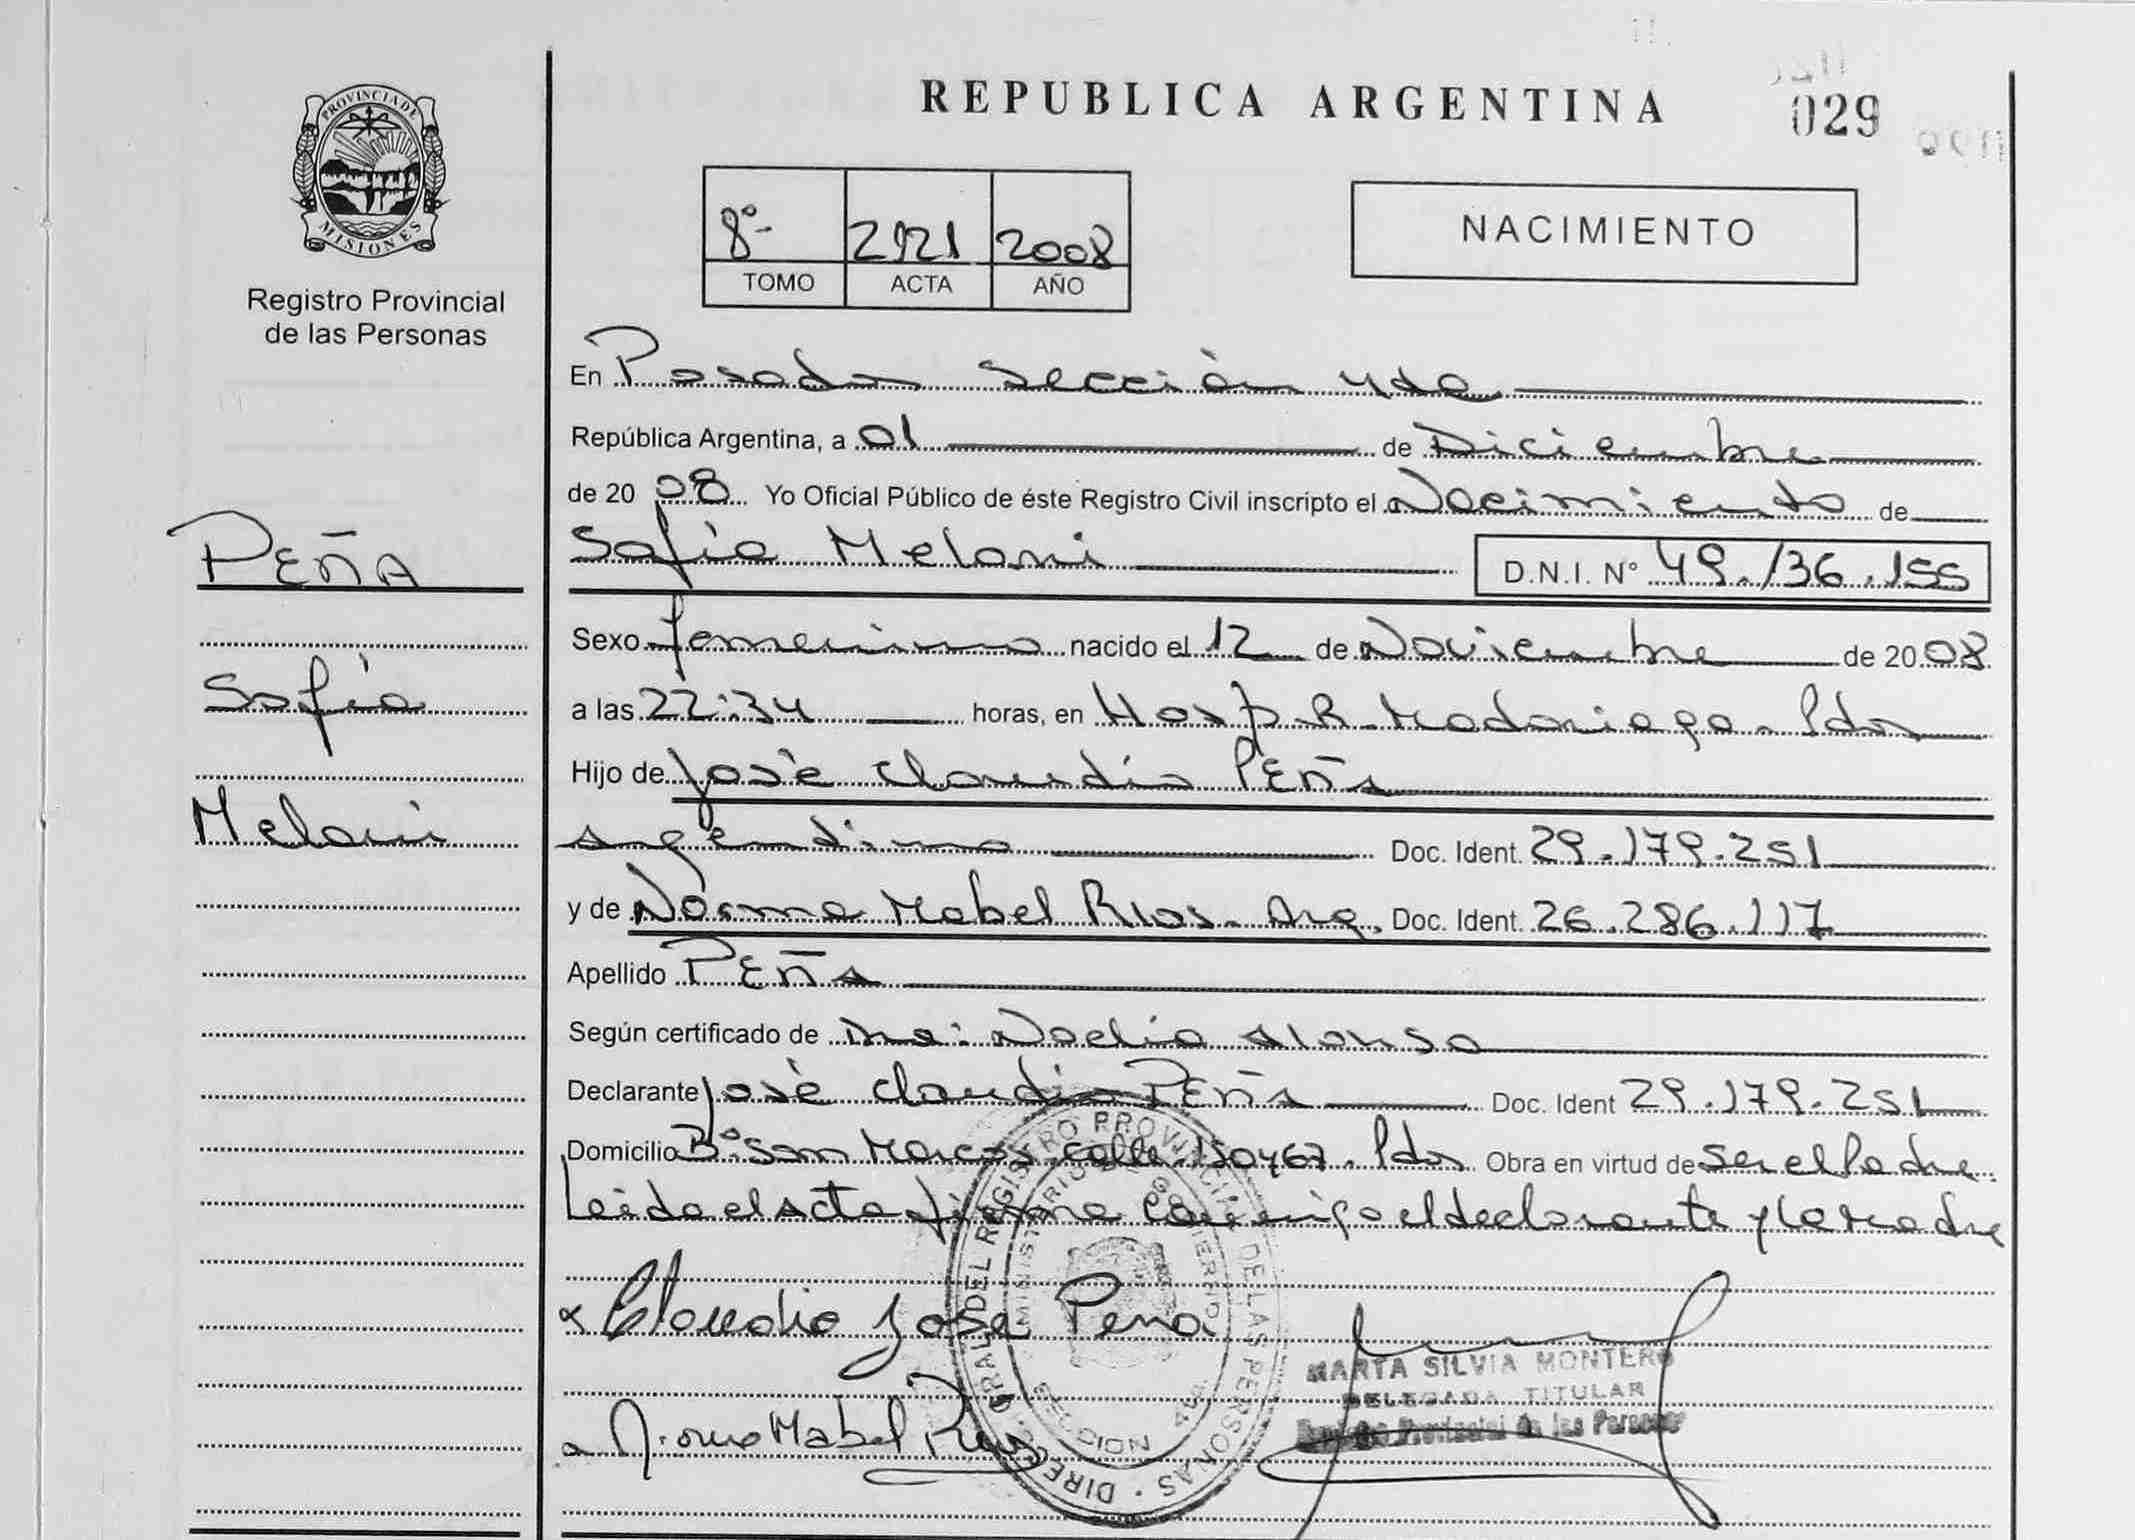 REPUBLICA ARGENTINA
029
PROVINCIA DE
MISIONES
Registro Provincial
de las Personas
8º- 2921 2008
TOMO ACTA AÑO
NACIMIENTO
En Posadas Sección 4ta
República Argentina, a 01 de Diciembre
de 2008 Yo Oficial Público de éste Registro Civil inscripto el Nacimiento de
PEÑA
Sofía Melani D.N.I. Nº 49.136.155
Sexo femenino nacido el 12 de Noviembre de 2008
Sofía
a las 22:34 horas, en Hosp. R. Madariaga - Pdas
Hijo de José Claudio PEÑA
Melani
Argentino Doc. Ident. 29.179.251
y de Norma Mabel Rios. Arg. Doc. Ident. 26.286.117
Apellido PEÑA
Según certificado de Dra: Noelia Alonso
Declarante José Claudio PEÑA Doc. Ident 29.179.251
Domicilio Bº San Marcos. calle Pdas Obra en virtud de ser el Padre
Leida el Acta firma conmigo el declarante y la Madre
Claudio José Pena
Norma Mabel Rios
MARTA SILVIA MONTERO
DELEGADA TITULAR
Registro Provincial de las Personas
DIREC. GRAL DEL REGISTRO PROVINCIAL DE LAS PERSONAS
MINISTERIO GOBIERNO
SECCION 4ta.